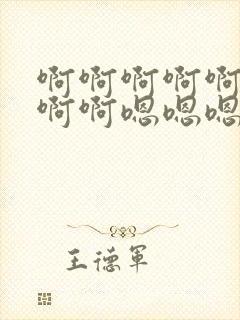 啊啊啊啊啊
啊啊嗯嗯嗯
王德軍